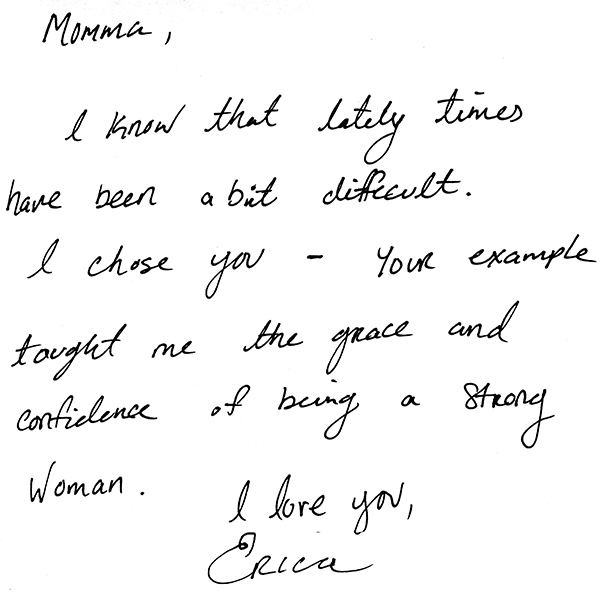 Momma,
I know that lately times
have been a bit difficult.
I chose you - Your example
taught me the grace and
confidence of being a strong
woman.
I love you,
Erica